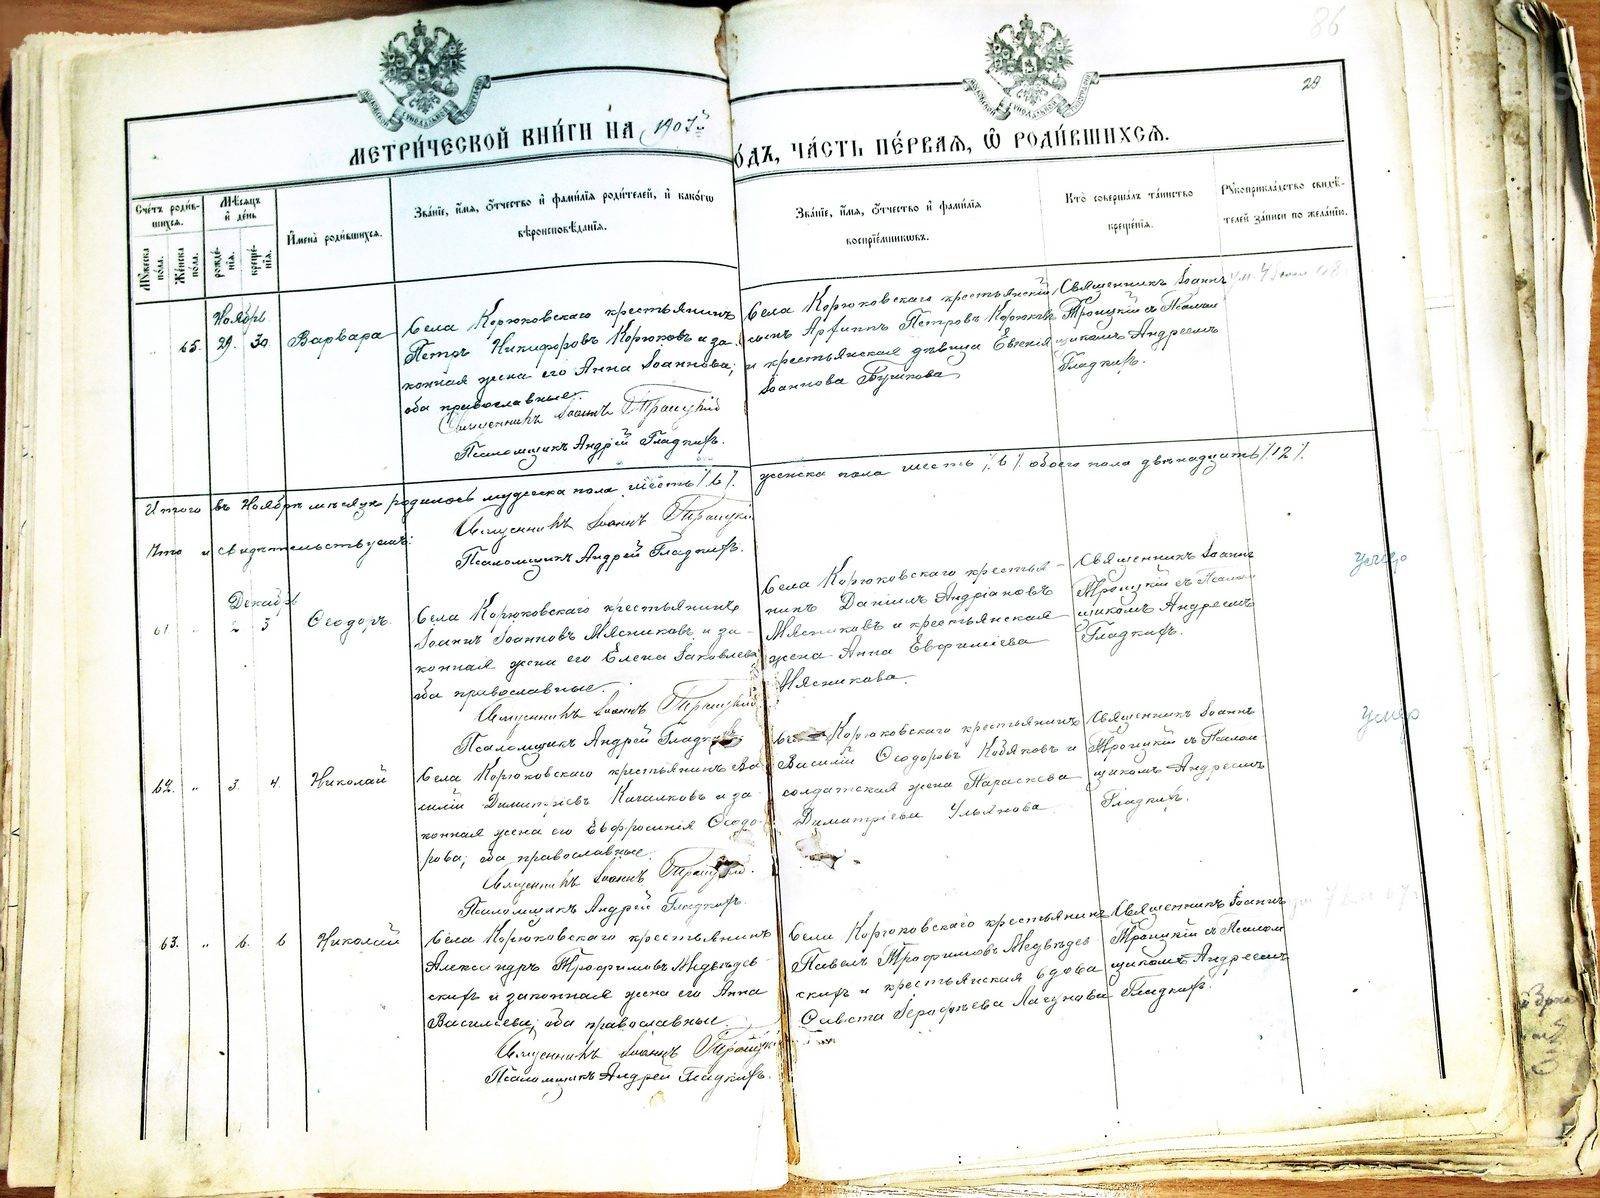 86
29
МЕТРИ́ЧЕСКОЙ КНИ́ГИ НА 1907й
ОДЪ, ЧА́СТЬ ПЕ́РВАЯ, Ѡ РОДИ́ВШИХСЯ.
Сче́тъ роди́в-
шихся.
Му́жеска по́ла.
Же́нска по́ла.
Мѣ́сяцъ и де́нь
рожде́нія.
креще́нія.
Имена̀ роди́вшихся.
Зва́ніе, и́мя, о́тчество и фами́лія роди́телей, и како́гѡ
вѣроисповѣ́данія.
Зва́ніе, и́мя, о́тчество и фами́лія
воспріе́мниковъ.
Кто̀ соверша́лъ та́инство
креще́нія.
Рукоприкла́дство свидѣ́-
телей за́писи по жела́нію.
Ноябрь
" 65. 29. 30. Варвара
Села Корюковскаго крестьянинъ
Петръ Никифоровъ Корюковъ и за-
конная жена его Анна Іоаннова;
оба православные.
Священникъ Іоаннъ Троицкій
Псаломщикъ Андрей Гладкихъ.
Села Корюковскаго крестьянскій
сынъ Арѳиппъ Петровъ Корюковъ
и крестьянская дѣвица Евгенія
Іоаннова Бушкова
Священникъ Іоаннъ
Троицкій съ Псалом
щикомъ Андреемъ
Гладкихъ.
Итого въ Ноябрѣ мѣсяцѣ родилось мужеска пола шесть /6/.
женска пола шесть /6/ обоего пола двѣнадцать /12/.
Священникъ Іоаннъ Троицкій
Что и свидѣтельствуемъ:
Псаломщикъ Андрей Гладкихъ.
Декабрь
61 " 2 3 Ѳеодоръ.
Села Корюковскаго крестьянинъ
Іоаннъ Іоанновъ Мясниковъ и за-
конная жена его Елена Іаковлева
оба православные.
Священникъ Іоаннъ Троицкій
Псаломщикъ Андрей Гладкихъ
Села Корюковскаго крестья-
нинъ Даніилъ Андріановъ
Мясниковъ и крестьянская
жена Анна Евфиміева
Мясникова.
Священникъ Іоаннъ
Троицкій съ Псалом
щикомъ Андреемъ
Гладкихъ.
умеръ
62. " 3. 4. Николай
Села Корюковскаго крестьянинъ Ва
силій Димитріевъ и за-
конная жена его Евфросинія Ѳеодо-
рова; оба православные.
Священникъ Іоаннъ Троицкій.
Псаломщикъ Андрей Гладкихъ.
Корюковскаго крестьянинъ
Василій Ѳеодоровъ Кобяковъ и
солдатская жена Параскева
Димитріева Ульянова
Священникъ Іоаннъ
Троицкій съ Псалом
щикомъ Андреемъ
Гладкихъ.
умеръ
63. " 6. 6 Николай
Села Корюковскаго крестьянинъ
Александръ Трофимовъ Медвѣдев-
скихъ и законная жена его Анна
Васильева; оба православные.
Священникъ Іоаннъ Троицкій
Псаломщикъ Андрей Гладкихъ.
Села Корюковскаго крестьянинъ
Павелъ Трофимовъ Медвѣдев-
скихъ и крестьянская вдова
Лагунова
Священникъ Іоаннъ
Троицкій съ Псалом
щикомъ Андреемъ
Гладкихъ.